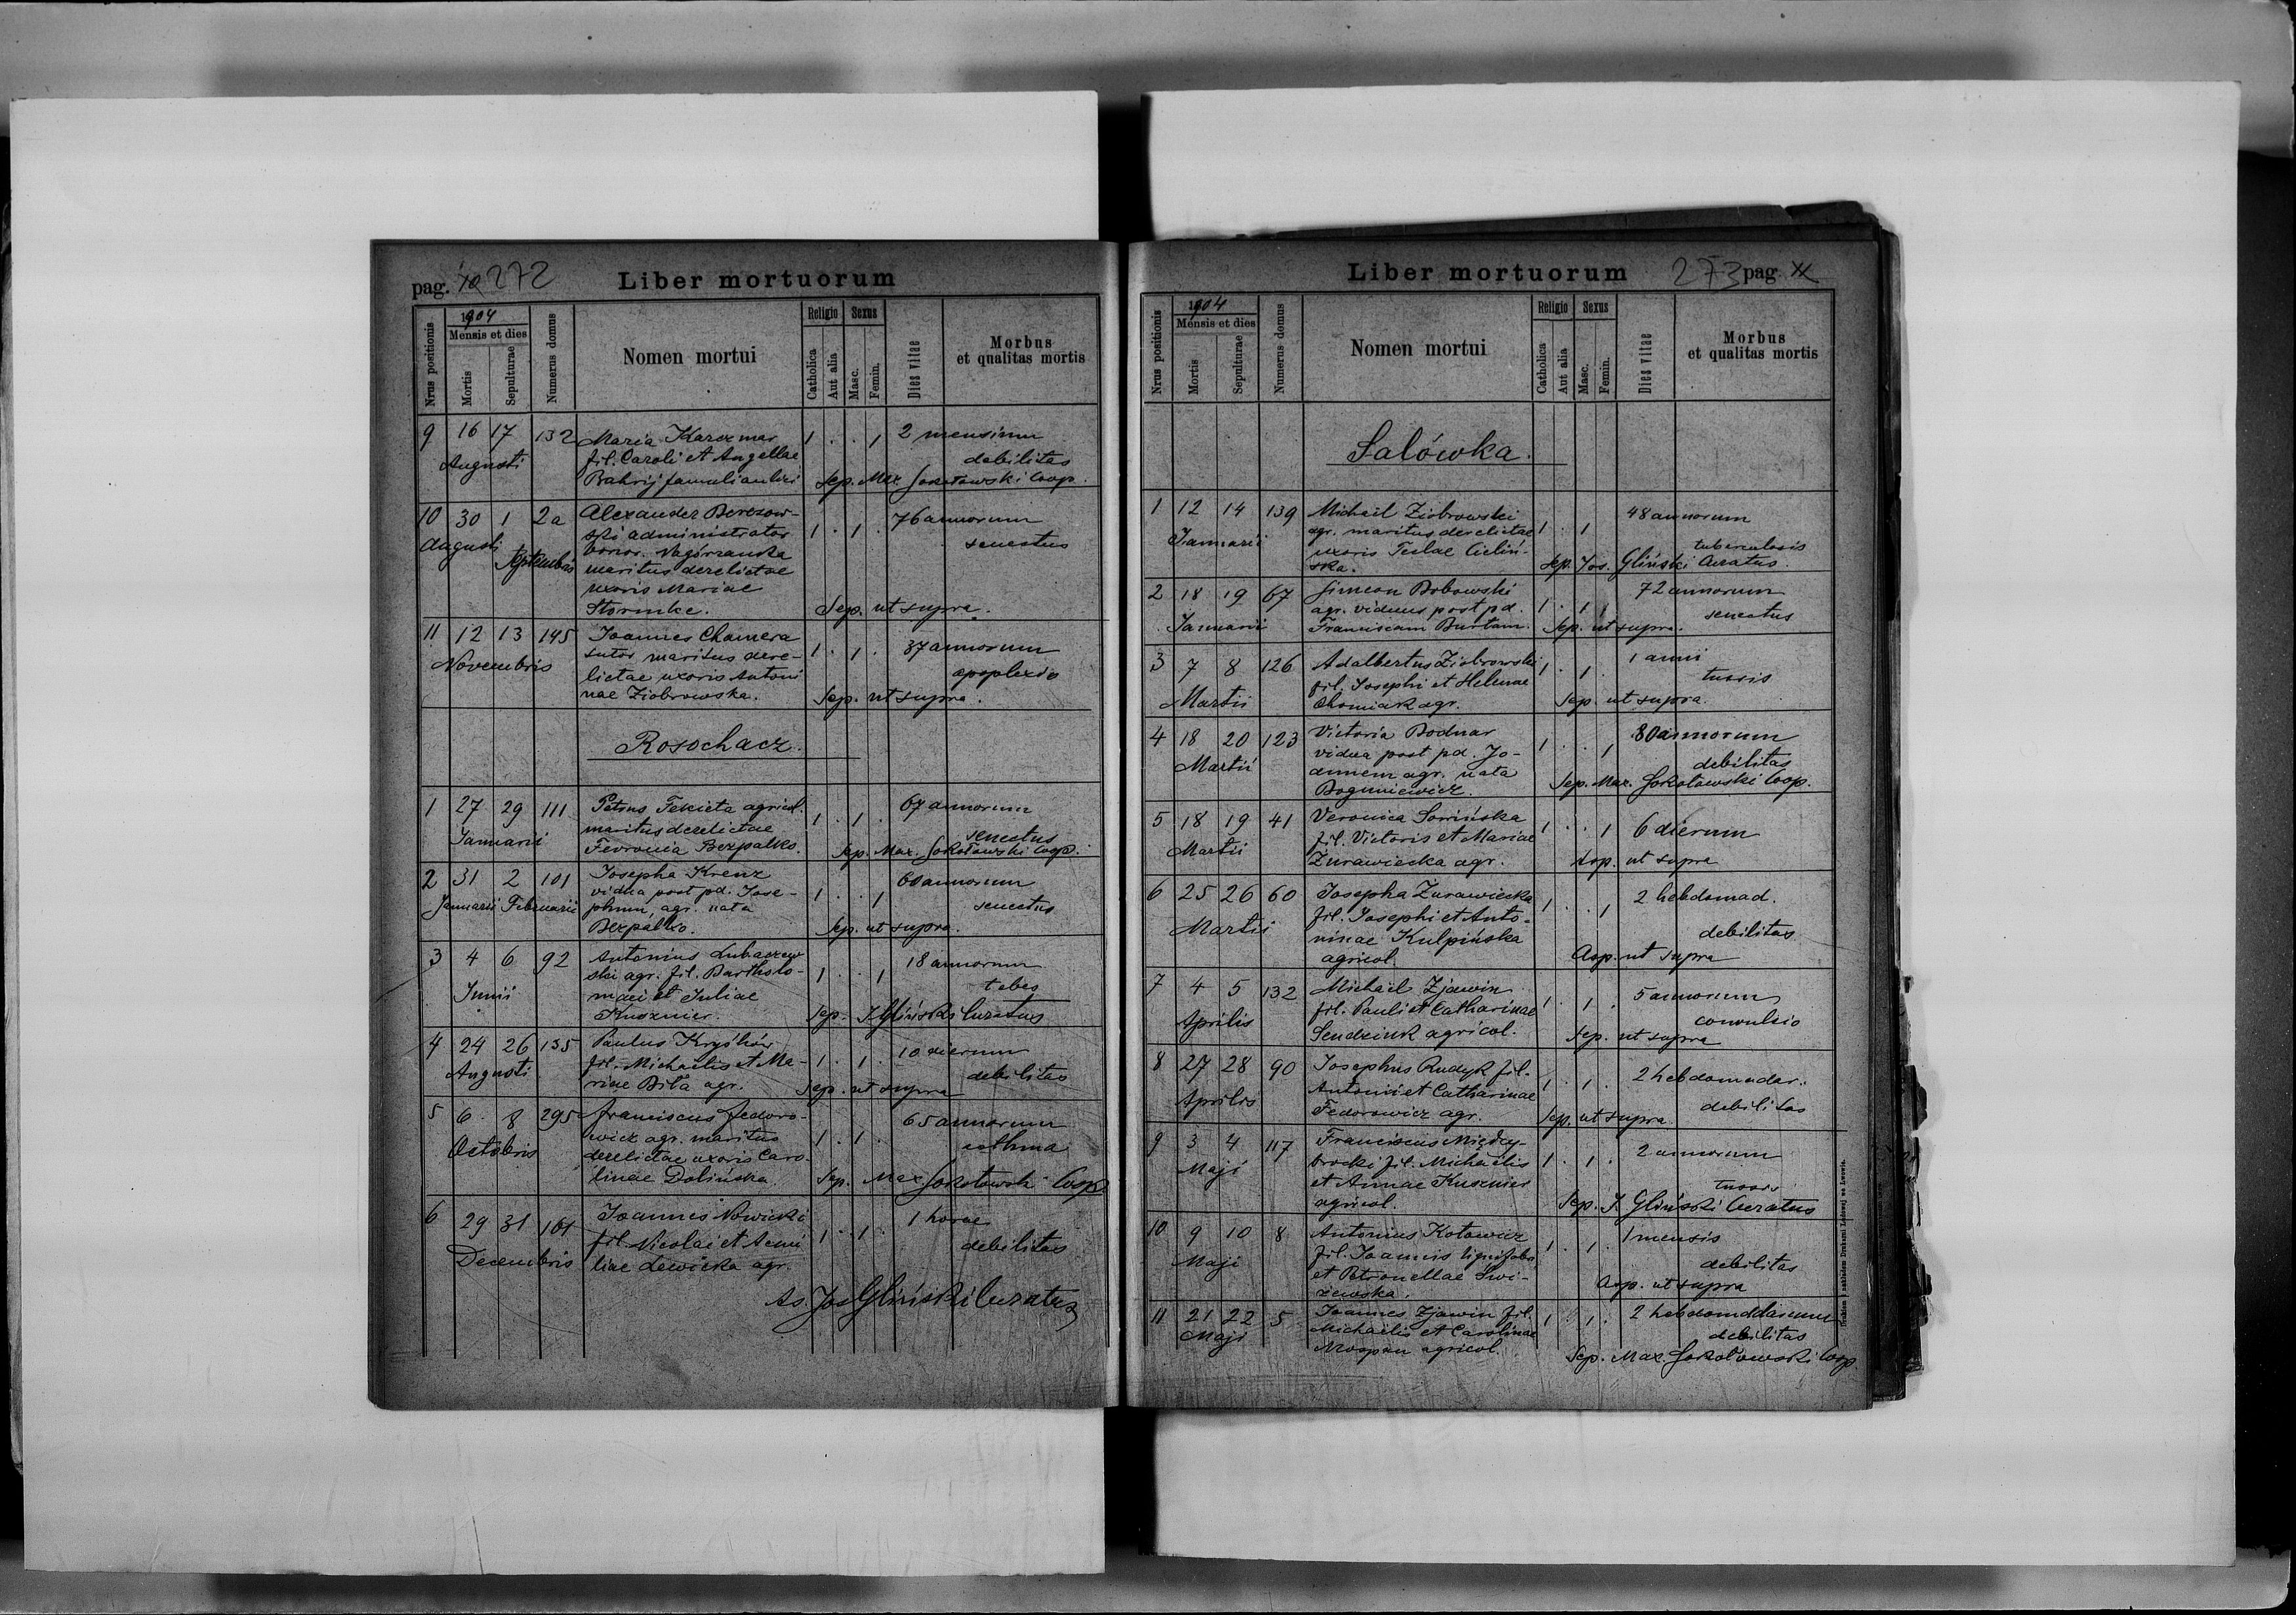 pag. 10 272 Liber mortuorum
Nrus positionis
1904
Mensis et dies
Mortis
Sepulturae
Numerus domus
Nomen mortui
Religio
Catholica
Aut alia
Sexus
Masc.
Femin.
Dies vitae
Morbus
et qualitas mortis
9 16 17 132 Maria Karczmar 1 . . 1 2 mensium
Augusti fil. Caroli et Angellae debilitas
Bahrij famuli aulici Sep. Max. Sokołowski Coop.
10 30 1 2a Alexander Berezow- 1 . 1 . 76 annorum
Augusti Septembris ski administrator senectus
bonor. Nagórzanka
maritus derelictae
uxoris Mariae
Sep. ut supra.
11 12 13 145 Joannes Chamera 1 . 1 . 37 annorum
Novembris sutor maritus dere- apoplexio
lictae uxoris Antoni
nae Ziobrowska. Sep. ut supra.
Rosochacz.
1 27 29 111 Petrus Fekieta agricol. 1 . 1 . 67 annorum
Januarii maritus derelictae senectus
Fevronia Bezpalko. Sep. Max. Sokołowski Coop.
2 31 2 101 Josepha Krenz 1 . . 1 60 annorum
Januarii Februarii vidua post pd. Jose- senectus
phum, agr. nata
Bezpalko. Sep. ut supra.
3 4 6 92 Antonius Lubaczew 1 . . 1 18 annorum
Junii ski agr. fil. Bartholo- tabes
maei et Juliae
Kusznier. Sep. J Gliński Curatus
4 24 26 135 Paulus Kryśków 1 . 1 . 10 dierum
Augusti fil. Michaelis et Ma- debilitas
riae Biła agr. Sep. ut supra
5 6 8 295 Franciscus Fedoro- 1 . 1 . 65 annorum
Octobris wicz agr. maritus asthma
derelictae uxoris Caro-
linae Dolińska. Sep. Max. Sokołowski Coop
6 29 31 101 Joannes Nowicki 1 . 1 . 1 horae
Decembris fil. Nicolai et Aemi debilitas
liae Lewicka agr.
As. Jos Gliński Curatus
Liber mortuorum 273 pag. 11
Nrus positionis
1904
Mensis et dies
Mortis
Sepulturae
Numerus domus
Nomen mortui
Religio
Catholica
Aut alia
Sexus
Masc.
Femin.
Dies vitae
Morbus
et qualitas mortis
Salówka.
1 12 14 139 Michaël Ziobrowski 1 . 1 48 annorum
Januarii agr. maritus derelictae tuberculosis
uxoris Teclae Cieliń-
ska. Sep. Jos. Gliński Curatus.
2 18 19 67 Simeon Bobowski 1 . 1 . 72 annorum
Januarii agr. viduus post pd. senectus
Franciscam Burtam. Sep. ut supra.
3 7 8 126 Adalbertus Ziobrowski 1 . 1 . 1 anni
Martii fil. Josephi et Helenae tussis
Chomiak agr. Sep. ut supra.
4 18 20 123 Victoria Bodnar 1 . . 1 80 annorum
Martii vidua post pd. Jo- debilitas
annem agr. nata
Boguniewicz. Sep. Max. Sokołowski Coop.
5 18 19 41 Veronica Sorińska 1 . . 1 6 dierum
Martii fil. Victoris et Mariae
Żurawiecka agr. Asp. ut supra
6 25 26 60 Josepha Żurawiecka 1 . . 1 2 hebdomad.
Martii fil. Josephi et Anto- debilitas
ninae Kulpińska
agricol. Asp. ut supra
7 4 5 132 Michaël Zjawin 1 . 1 . 5 annorum
Aprilis fil. Pauli et Catharinae convulsio
Sendziuk agricol. Sep. ut supra
8 27 28 90 Josephus Rudyk fil. 1 . 1 . 2 hebdomadar.
Aprilis Antonii et Catharinae debilitas
Fedorowicz agr. Sep. ut supra
9 3 4 117 Franciscus Między- 1 . 1 . 2 annorum
Maji brocki fil. Michaelis
et Annae Kusznier tussis
agricol. Sep. J. Gliński Curatus
10 9 10 8 Antonius Kotowicz 1 . 1 . 1 mensis
Maji fil. Joannis lignifabr debilitas
et Petronellae Swi- Asp. ut supra
żewska.
11 21 22 5 Joannes Zjawin fil. 1 . 1 . 2 hebdomadarum
Maji Michaëlis et Carolinae debilitas
Mospan agricol. Sep. Max. Sokołowski Coop
Drukiem i nakładem Drukarni Ludowej we Lwowie.